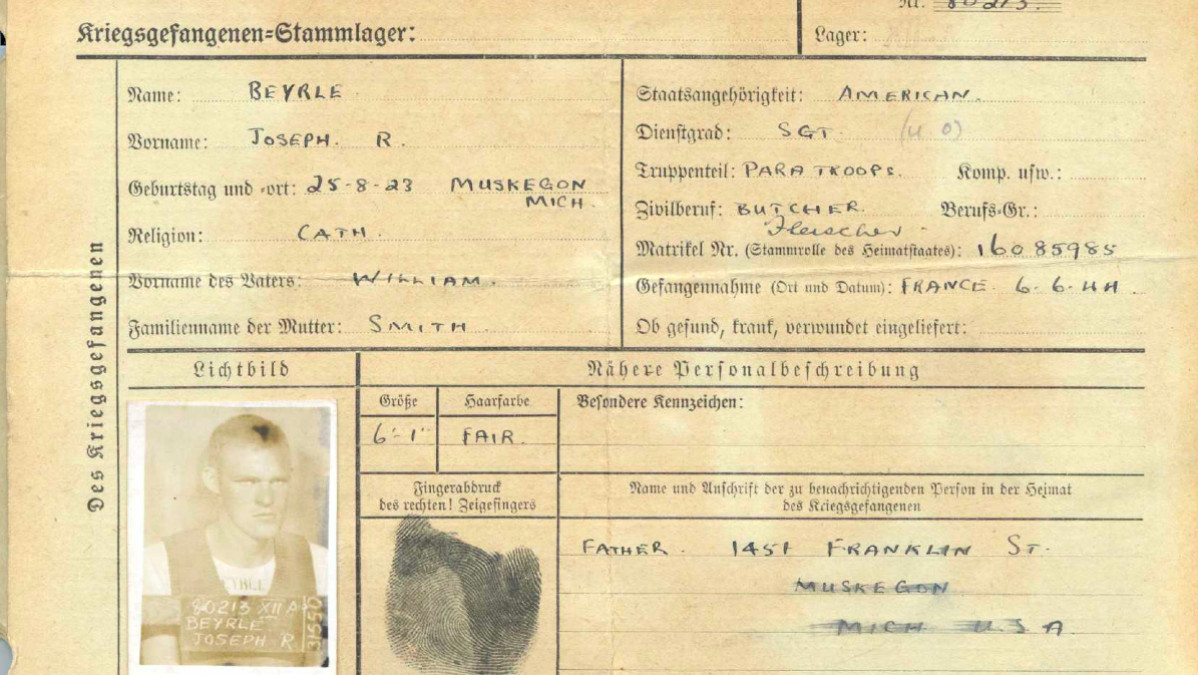 Nr. 80213.
Kriegsgefangenen-Stammlager:
Lager:
Des Kriegsgefangenen
Name: BEYRLE
Vorname: JOSEPH. R.
Geburtstag und -ort: 25-8-23 MUSKEGON
MICH.
Religion: CATH.
Vorname des Vaters: WILLIAM.
Familienname der Mutter: SMITH.
Staatsangehörigkeit: AMERICAN.
Dienstgrad: SGT. (U.O)
Truppenteil: PARATROOPS. Komp. usw.:
Zivilberuf: BUTCHER. Berufs-Gr.:
Fleischer
Matrikel Nr. (Stammrolle des Heimatstaates): 16085985
Gefangennahme (Ort und Datum): FRANCE. 6-6-44.
Ob gesund, krank, verwundet eingeliefert:
Lichtbild
Nähere Personalbeschreibung
Größe
Haarfarbe
Besondere Kennzeichen:
6'-1"
FAIR.
Fingerabdruck
des rechten! Zeigefingers
Name und Anschrift der zu benachrichtigenden Person in der Heimat
des Kriegsgefangenen
FATHER. 1451 FRANKLIN ST.
MUSKEGON
MICH USA
80213 XII A
BEYRLE
JOSEPH R
31550